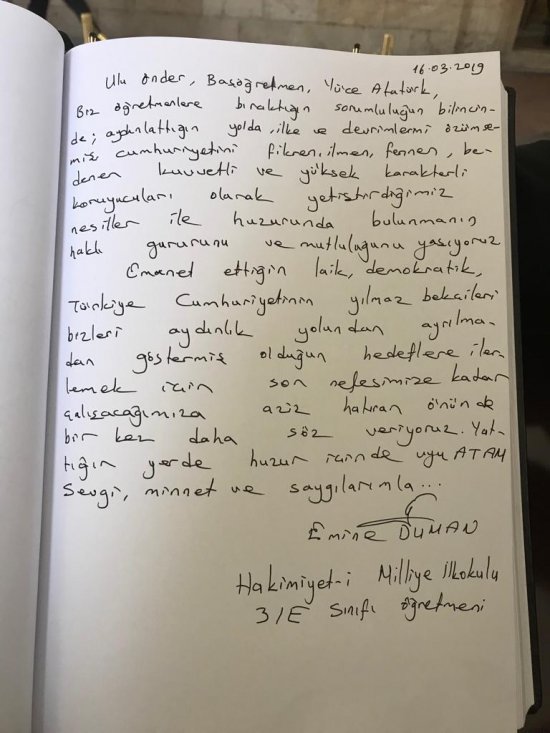 16.03.2019
Ulu Önder, Başöğretmen, Yüce Atatürk,
Biz öğretmenlere bıraktığın sorumluluğun bilincin-
de; aydınlattığın yolda, ilke ve devrimlerini özümse-
miş cumhuriyetini fikren, ilmen, fennen, be-
denen kuvvetli ve yüksek karakterli
koruyucuları olarak yetiştirdiğimiz
nesiller ile huzurunda bulunmanın
haklı gururunu ve mutluluğunu yaşıyoruz
Emanet ettiğin laik, demokratik,
Türkiye Cumhuriyetinin yılmaz bekçileri
bizleri aydınlık yolundan ayrılma-
dan göstermiş olduğun hedeflere iler-
lemek için son nefesimize kadar
çalışacağımıza aziz hatıran önünde
bir kez daha söz veriyoruz. Yat-
tığın yerde huzur içinde uyu ATAM
Sevgi, minnet ve saygılarımla...
Emine DUMAN
Hakimiyet-i Milliye İlkokulu
3/E Sınıfı öğretmeni